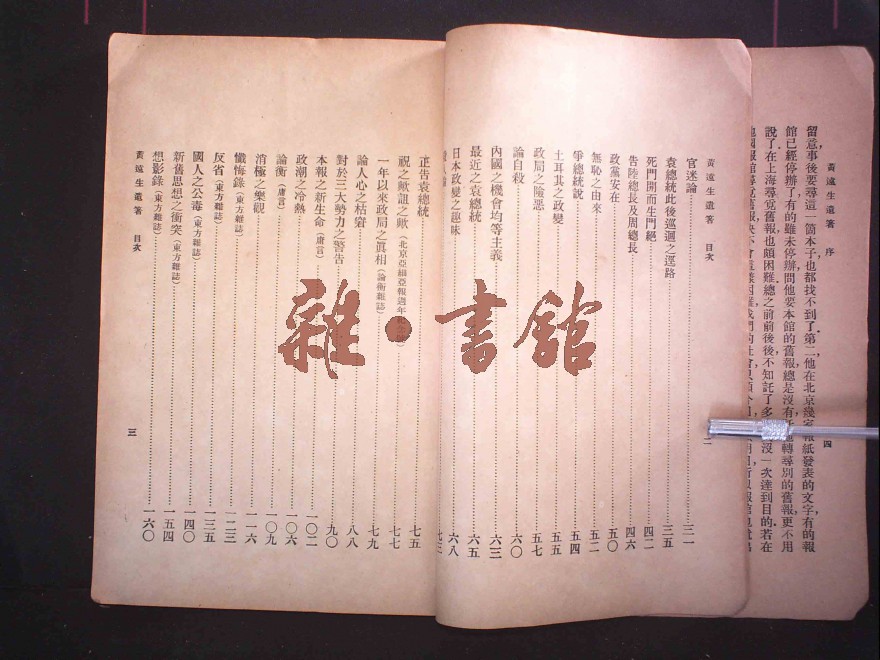 黃遠生遺著　序
四
留意事後要尋這一箇本子也都找不到了第二他在北京幾家報紙發表的文字有的報
館已經停辦了有的雖未停辦問他要本館的舊報總是沒有
轉尋別的舊報更不用
說了在上海尋覓舊報也頗困難總之前前後後不知託了多
沒一次達到目的若在
黃遠生遺著　目次
二
官迷論 三一
袁總統此後巡迴之逕路 三五
死門開而生門絕 四二
告陸總長及周總長 四六
政黨安在 五〇
無恥之由來 五二
爭總統說 五四
土耳其之政變 五五
政局之險惡 五七
論自殺 六〇
內國之機會均等主義 六三
最近之袁總統 六五
日本政變之趣味 六八
七三
正告袁總統 七五
祝之歟詛之歟（北京亞細亞報週年 七七
一年以來政局之眞相（論衡雜誌） 七九
論人心之枯窘 八八
對於三大勢力之警告 九〇
本報之新生命（庸言） 一〇二
政潮之冷熱 一〇六
論衡（庸言） 一〇九
消極之樂觀 一一六
懺悔錄（東方雜誌） 一二三
反省（東方雜誌） 一三五
國人之公毒（東方雜誌） 一四〇
新舊思想之衝突（東方雜誌） 一五四
想影錄（東方雜誌） 一六〇
黃遠生遺著　目次
三
雜·書館